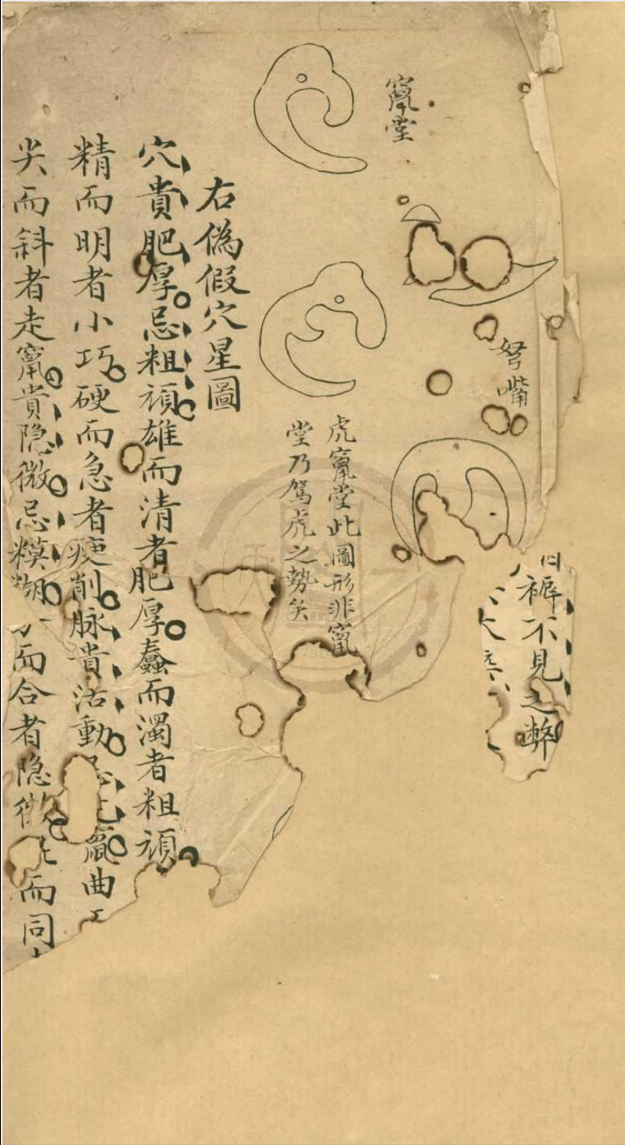 裤不見之弊
窝堂
弩嘴
虎窝堂此圖形非窝
堂乃駕虎之勢矣
右偽假穴星圖
穴貴肥厚忌粗頑雄而清者肥厚蠢而濁者粗頑
精而明者小巧硬而急者瘦削脉貴活動
曲
尖而斜者走窝貴隐微忌糢糊
而合者隐微
而同